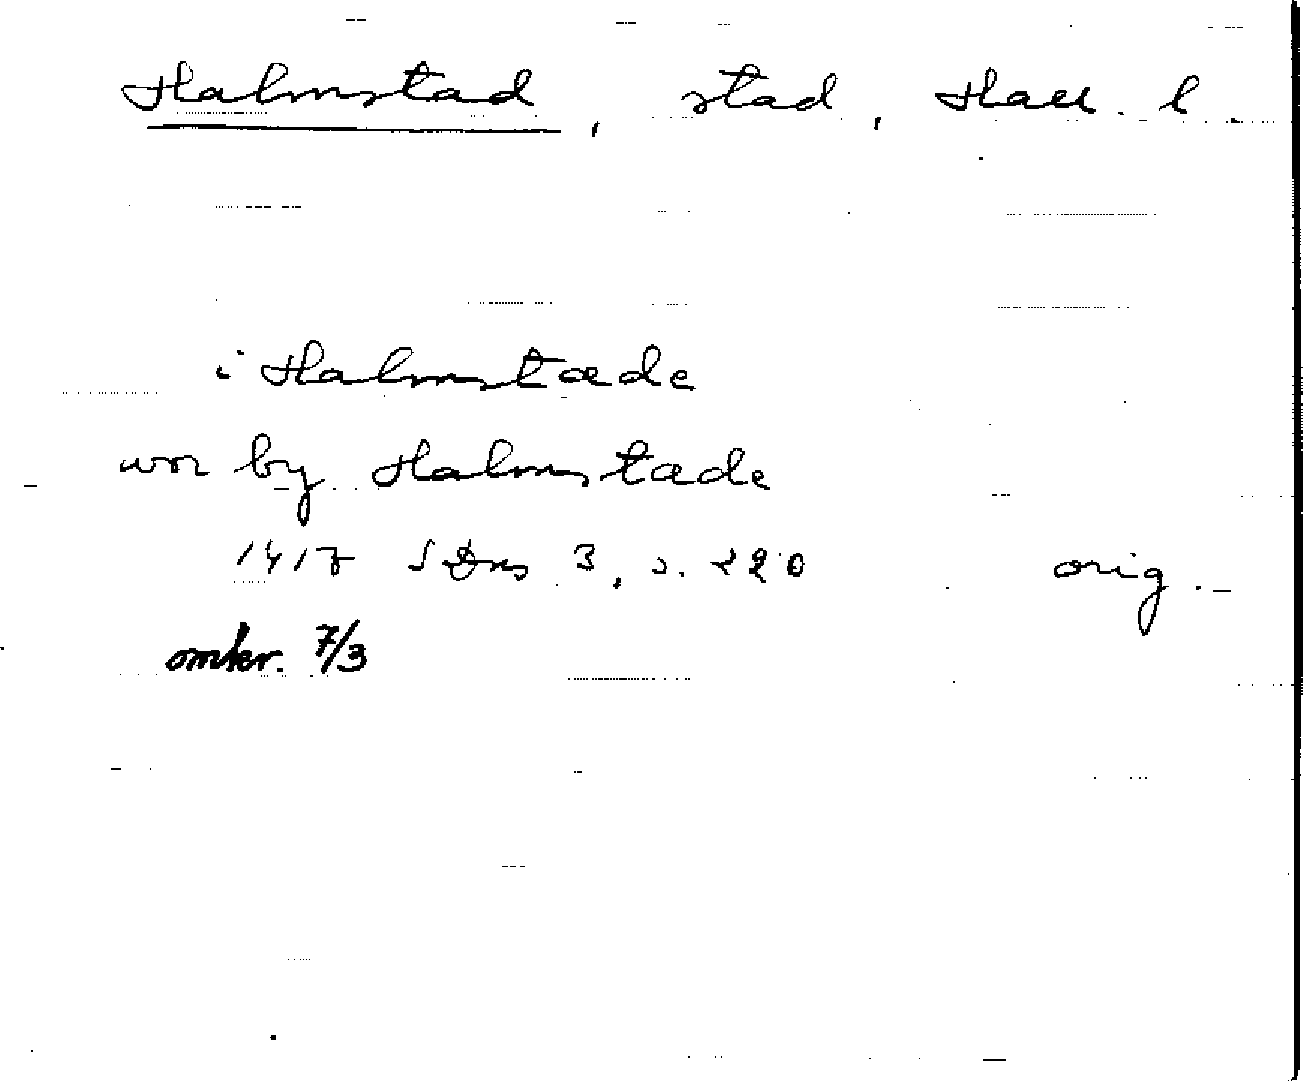 Halmstad, stad, Hall. l.
i Halmstæde
wor by Halmstæde
1417 SDns 3, s. 220 orig.
omkr. 7/3